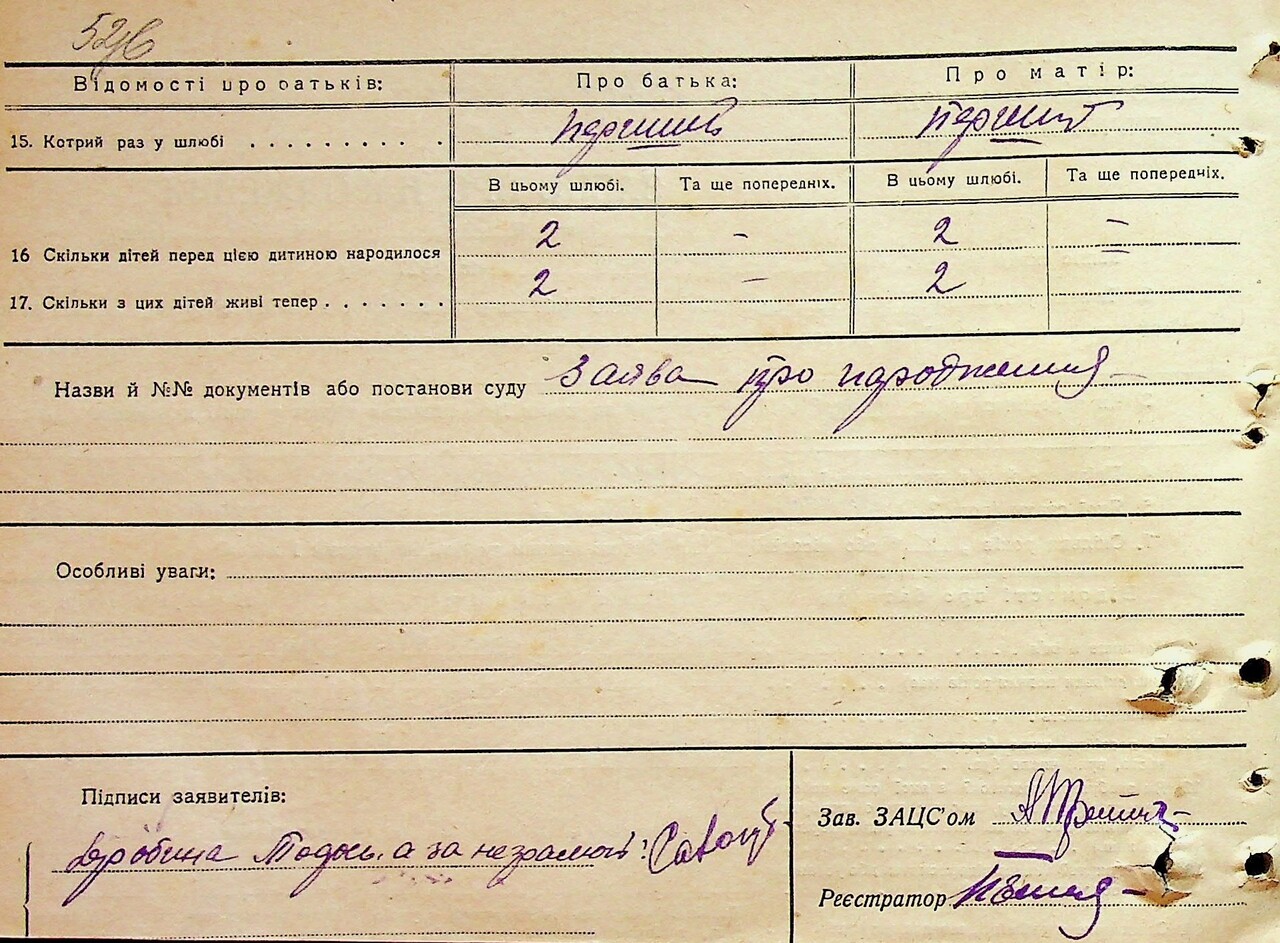 Відомості про батьків: Про батька: Про матір:
15. Котрий раз у шлюбі . . . . . . . . . . перший перший
В цьому шлюбі. Та ще попередніх. В цьому шлюбі. Та ще попередніх.
16 Скільки дітей перед цією дитиною народилося 2 - 2 -
17. Скільки з цих дітей живі тепер . . . . . . . 2 - 2
Назви й №№ документів або постанови суду Заява про народження
Особливі уваги:
Підписи заявителів:
Зав. ЗАЦС'ом
а за неграмот
Реєстратор